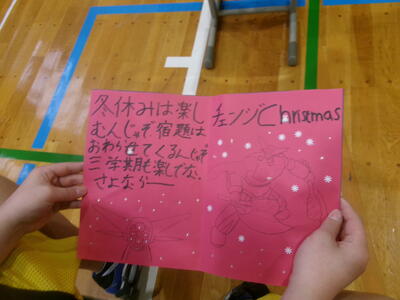 冬休みは楽し
むんじゃぞ宿題は
おわらせてくるんじゃぞ
三学期も楽しでな、
さよならー
チェンジChrismas